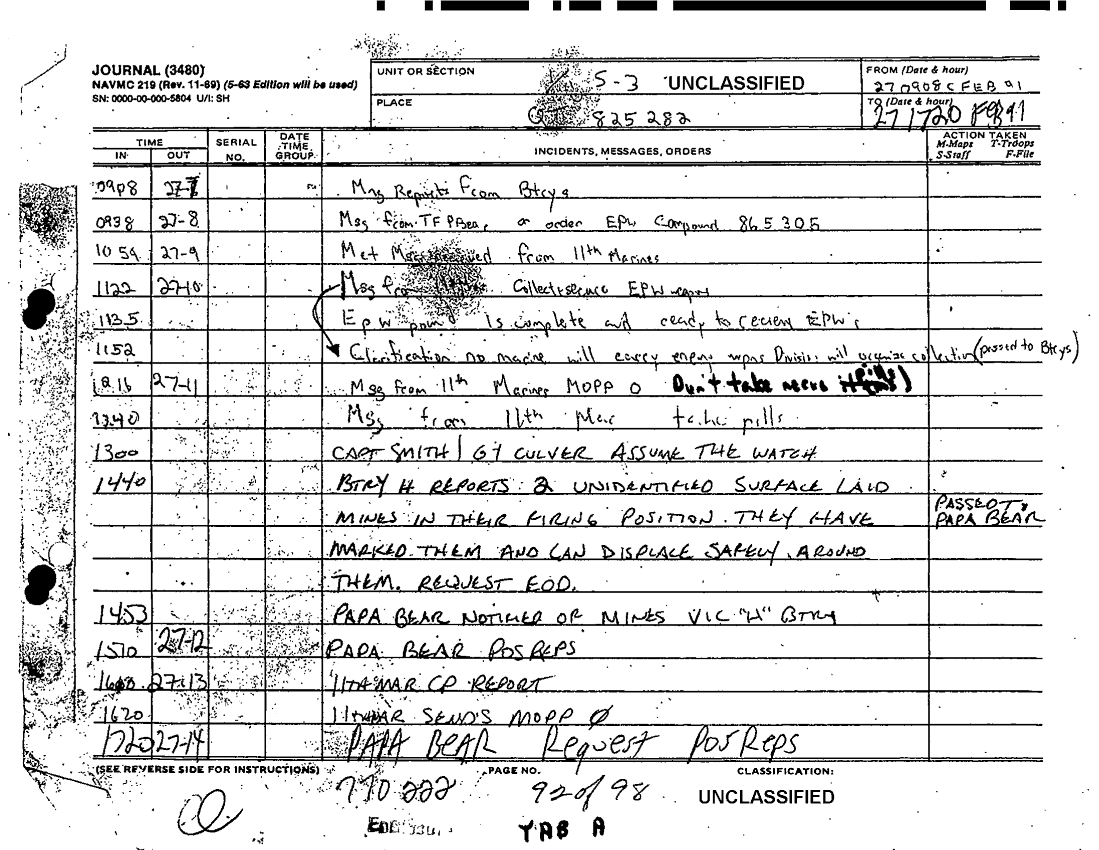 JOURNAL (3480)
NAVMC 219 (Rev. 11-69) (5-63 Edition will be used)
SN: 0000-00-000-5804 U/I: SH
UNIT OR SECTION S-3 UNCLASSIFIED
FROM (Date & hour)
270908C FEB 91
PLACE 825282
TO (Date & hour)
271720 FEB 91
TIME
IN OUT
SERIAL NO.
DATE TIME GROUP
INCIDENTS, MESSAGES, ORDERS
ACTION TAKEN
M-Maps T-Troops
S-Staff F-File
0908 27-7 Msg Reports from Btrys
0938 27-8 Msg from TF PBear, or order EPW Compound 865305
1059 27-9 Met Msg received from 11th Marines
1122 27-10 Msg from Collect+secure EPW
1135 EPW is complete and ready to EPW's
1152 Clarification no marine will carry enemy wpns Division will organize collection (passed to Btrys)
1216 27-11 Msg from 11th Marines MOPP 0 Don't take nerve
1240 Msg from 11th Mar take pills
1300 CAPT SMITH / CULVER ASSUME THE WATCH
1440 BTRY H REPORTS 2 UNIDENTIFIED SURFACE LAID
MINES IN THEIR FIRING POSITION. THEY HAVE PASSED TO PAPA BEAR
MARKED THEM AND CAN DISPLACE SAFELY AROUND
THEM. REQUEST EOD.
1453 PAPA BEAR NOTIFIED OF MINES VIC "H" BTRY
1510 27-12 PAPA BEAR POSREPS
27-13 11TH MAR CP REPORT
1620 11TH MAR SEND'S MOPP Ø
1720 27-14 PAPA BEAR Request PosReps
(SEE REVERSE SIDE FOR INSTRUCTIONS) PAGE NO. CLASSIFICATION:
92 of 98 UNCLASSIFIED
TAB A